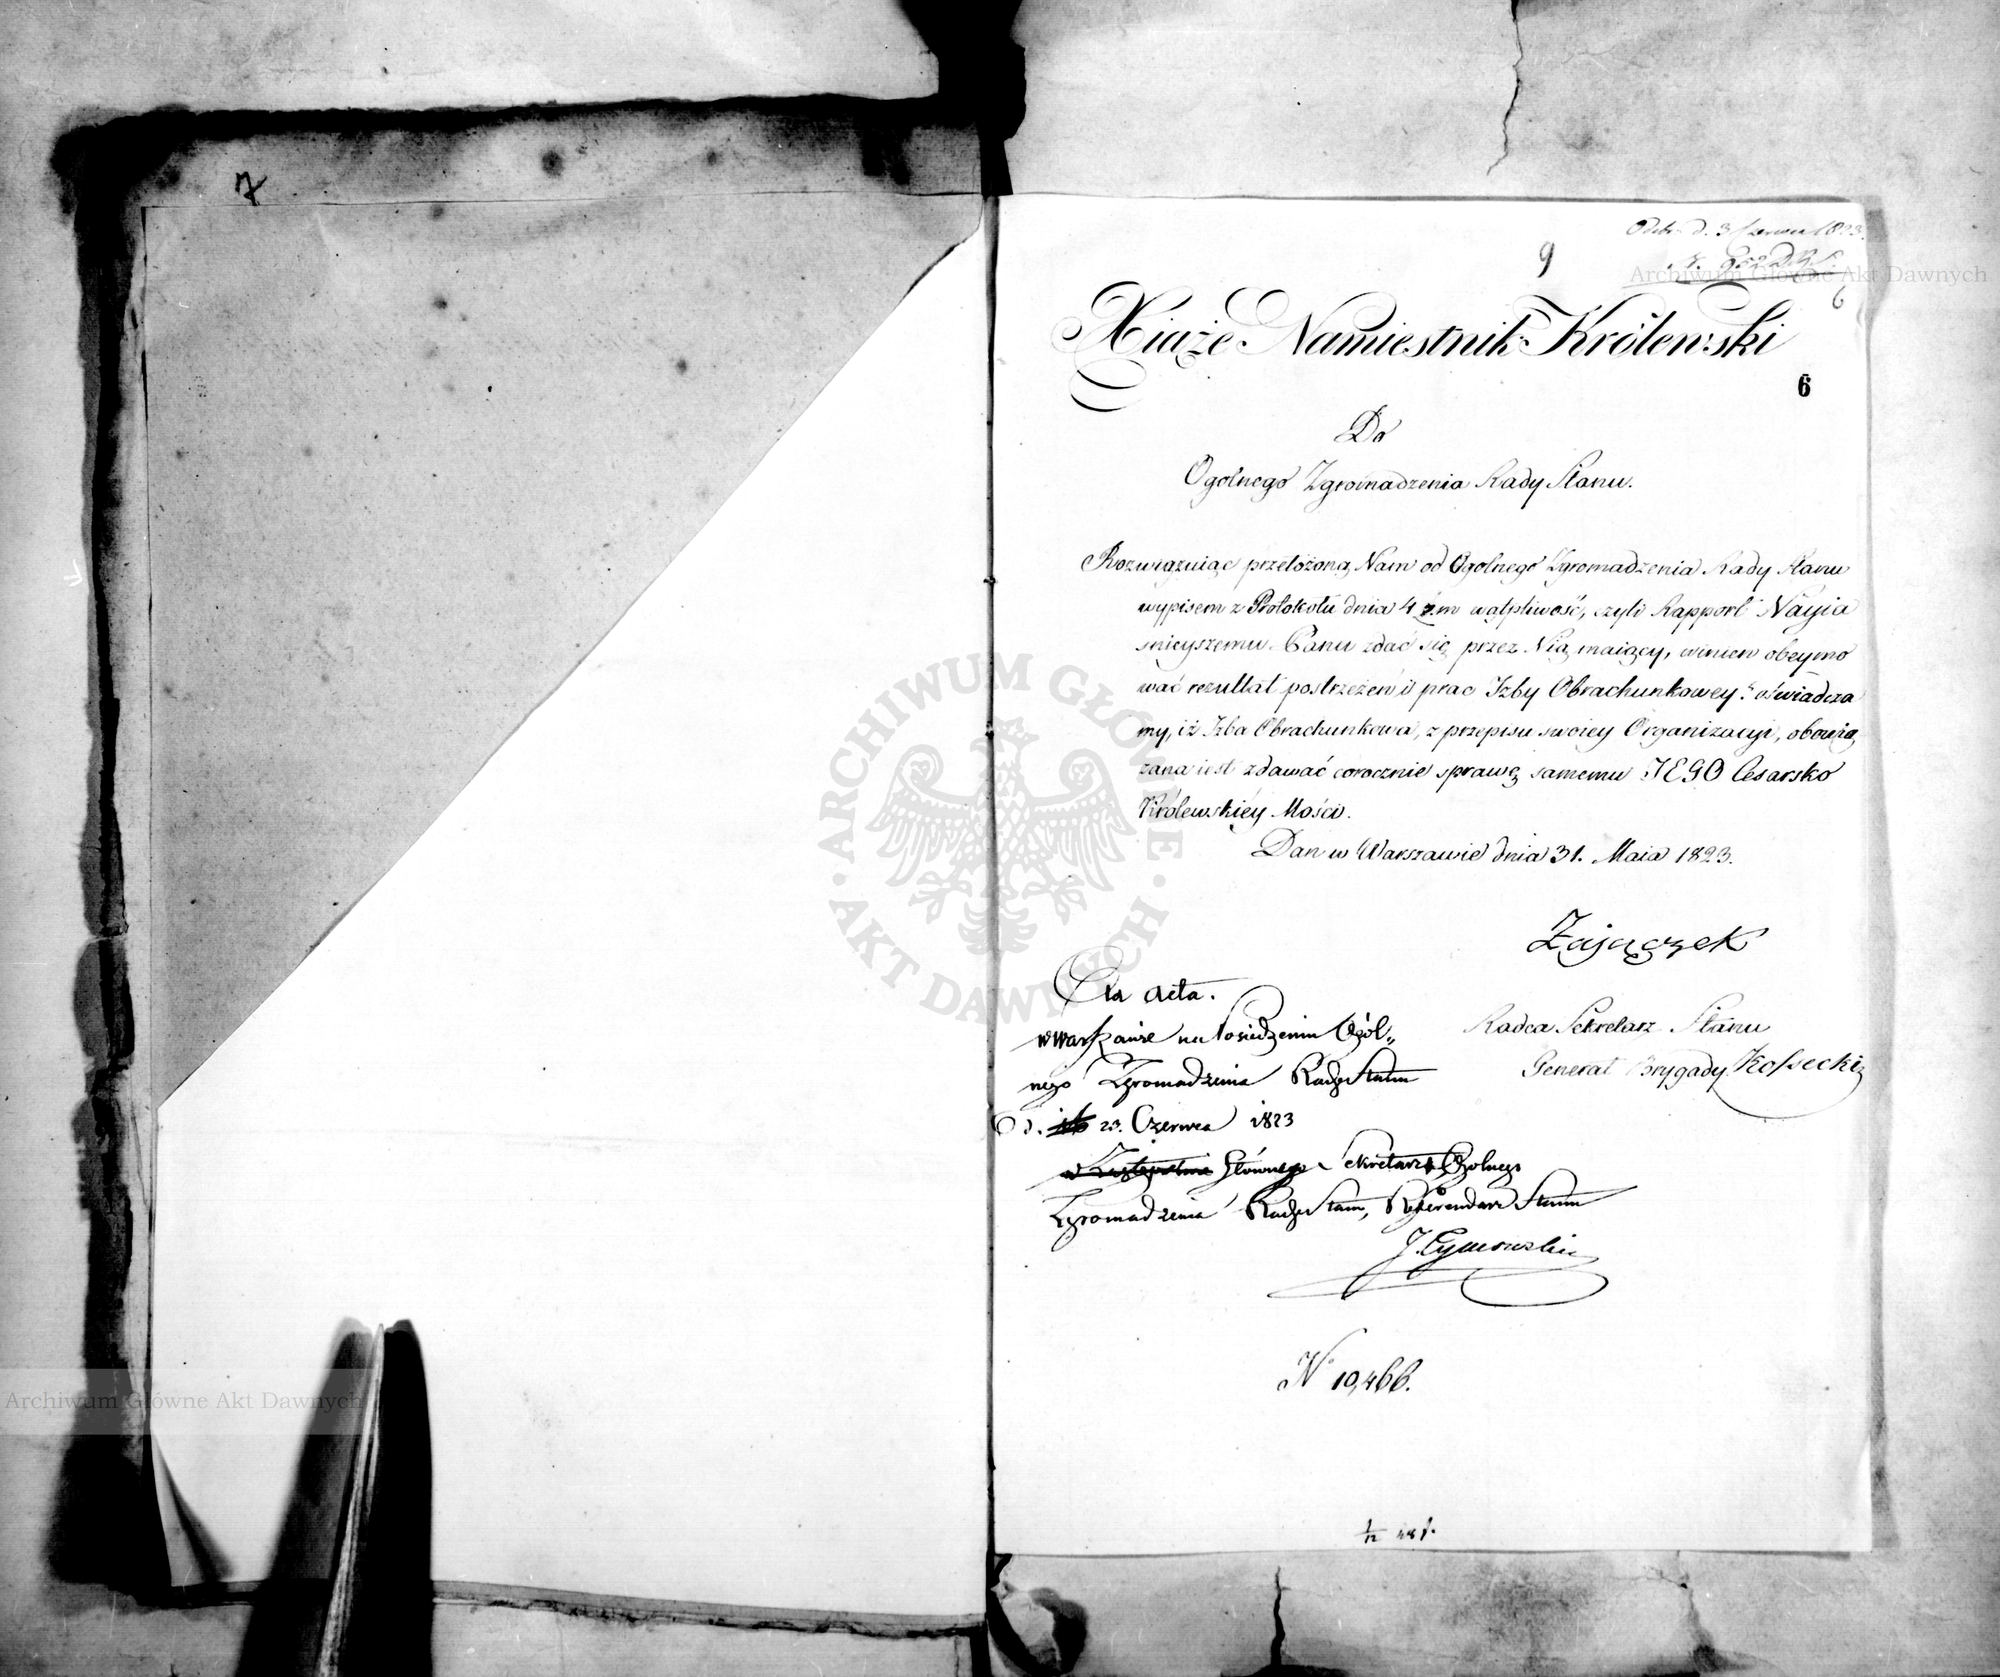 7
Odebr. d. 3 Czerwca 1823.
9
N. 952 D.G.S.
Archiwum Główne Akt Dawnych
6
Xiąże Namiestnik Królewski
6
Do
Ogolnego Zgromadzenia Rady Stanu.
Rozwiązuiąc przełożoną Nam od Ogolnego Zgromadzenia Rady Stanu
wypisem z Protokołu dnia 4 b.m wątpliwość, czyli Rapport Nayia
snieyszemu Panu zdać się przez Nią maiący, winien obeymo
wać rezultat postrzeżeń i prac Izby Obrachunkowey: oświadcza
my, iż Izba Obrachunkowa, z przepisu swoiey Organizacyi, obowią
zana iest zdawać corocznie sprawę samemu JEGO Cesarsko
Królewskiéy Mości.
Dan w Warszawie dnia 31. Maia 1823.
Zajączek
Ad acta.
w Warszawie na Posiedzeniu Ogól„
nego Zgromadzenia Rady Stanu
d. 23. Czerwca 1823
Radca Sekretarz Stanu
Generał Brygady Kossecki
w Zastępstwie Głównego Sekretarza Ogolnego
Zgromadzenia Rady Stanu, Referendarz Stanu
J. Tymowski
N° 10,466.
ARCHIWUM GŁÓWNE · AKT DAWNYCH ·
Archiwum Główne Akt Dawnych